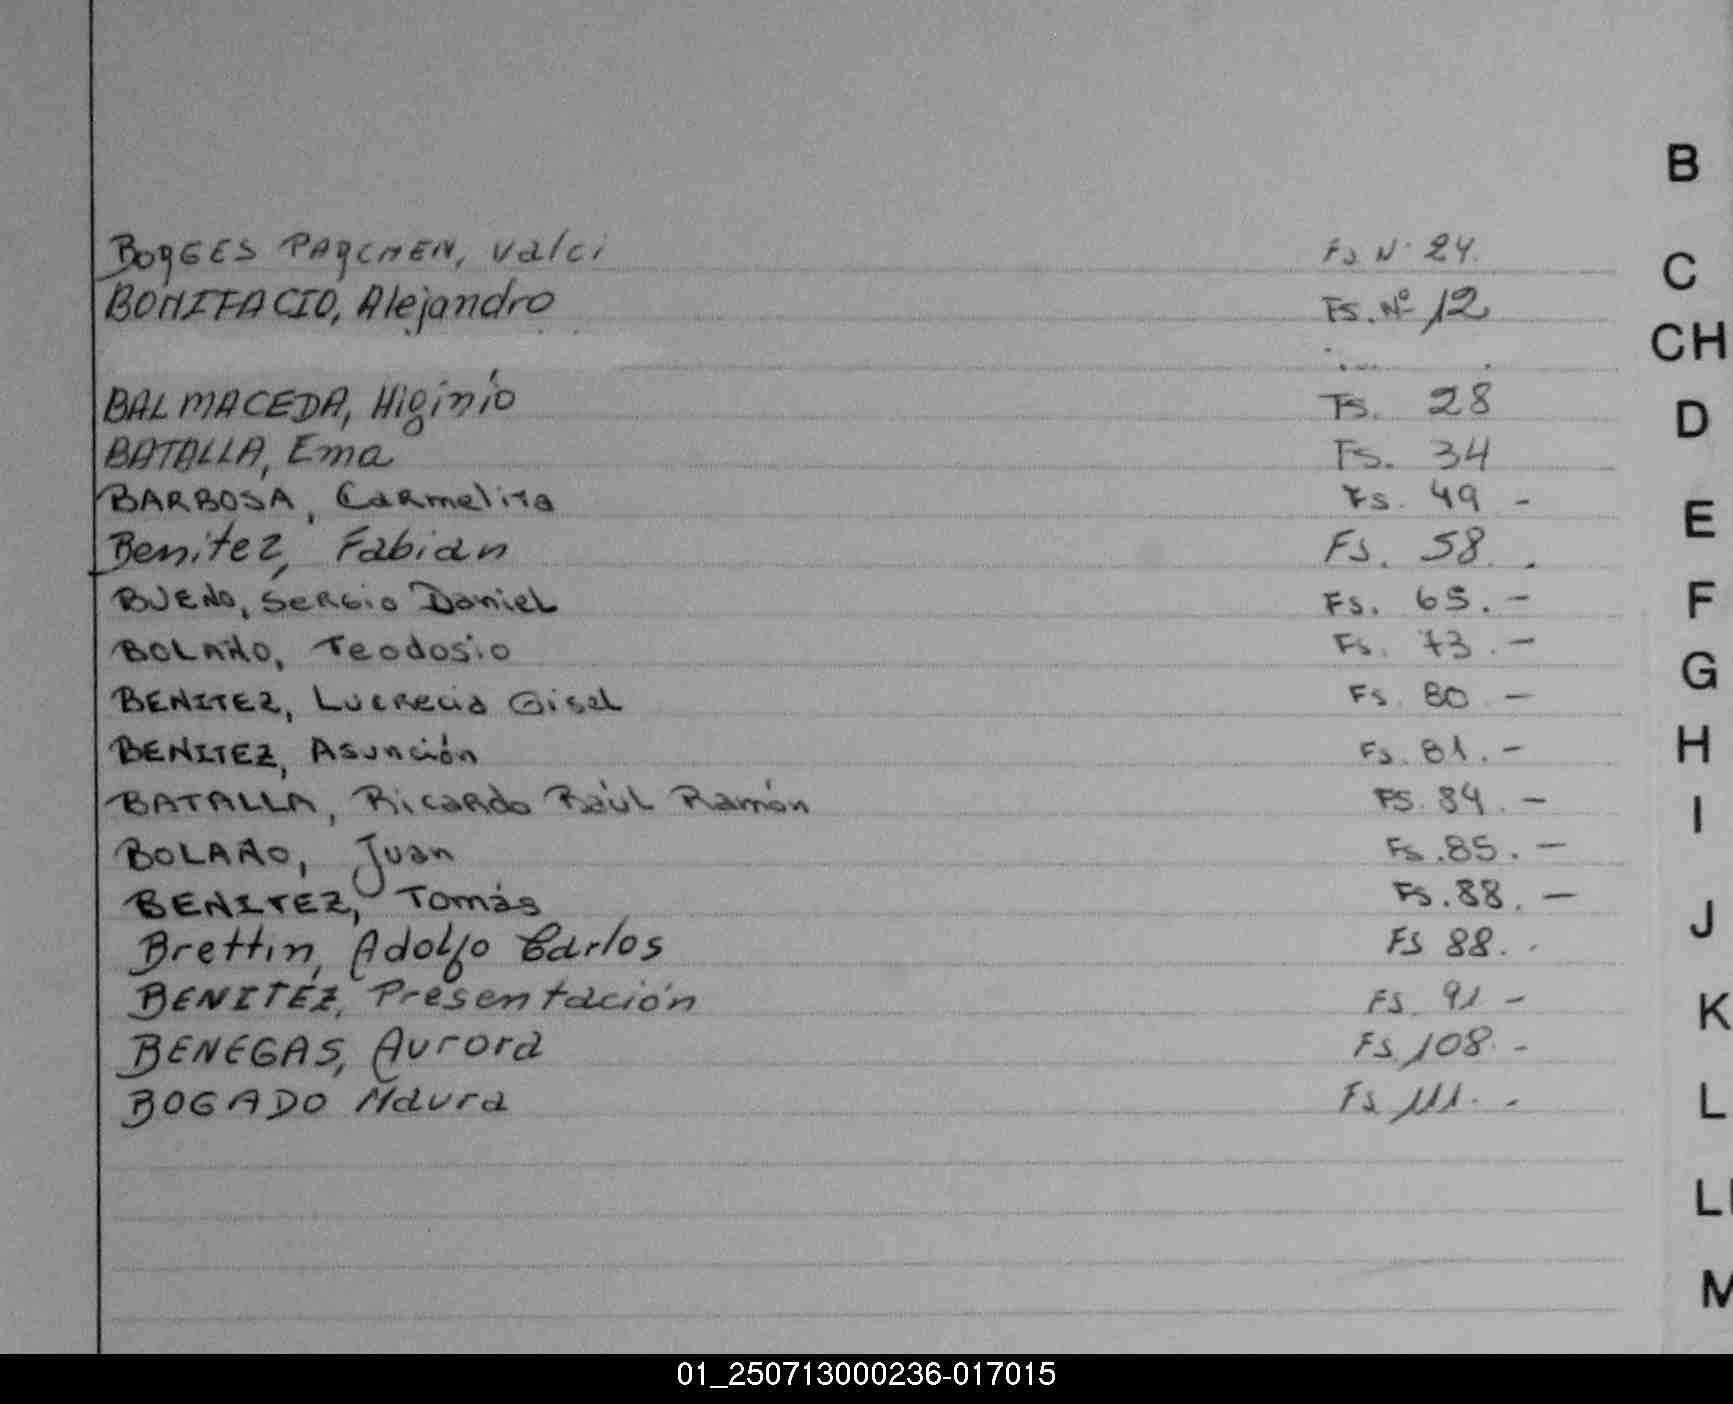 B
C
CH
D
E
F
G
H
I
J
K
L
LL
M
BORGES PARCHEN, Valci Fs N° 24.
BONIFACIO, Alejandro Fs. Nº 12
BALMACEDA, Higinio Fs. 28
BATALLA, Ema Fs. 34
BARBOSA, Carmelita Fs. 49 -
Benitez, Fabian Fs. 58. .
BUENO, Sergio Daniel Fs. 65. -
BOLAÑO, Teodosio Fs. 73. -
BENITEZ, Lucrecia Gisel Fs. 80 -
BENITEZ, Asunción Fs. 81. -
BATALLA, Ricardo Raúl Ramón FS. 84. -
BOLAÑO, Juan Fs. 85. -
BENITEZ, Tomás Fs. 88. -
Brettin, Adolfo Carlos Fs 88. .
BENITEZ, Presentación FS. 91 -
BENEGAS, Aurora Fs 108. -
BOGADO Maura Fs 111. -
01_250713000236-017015